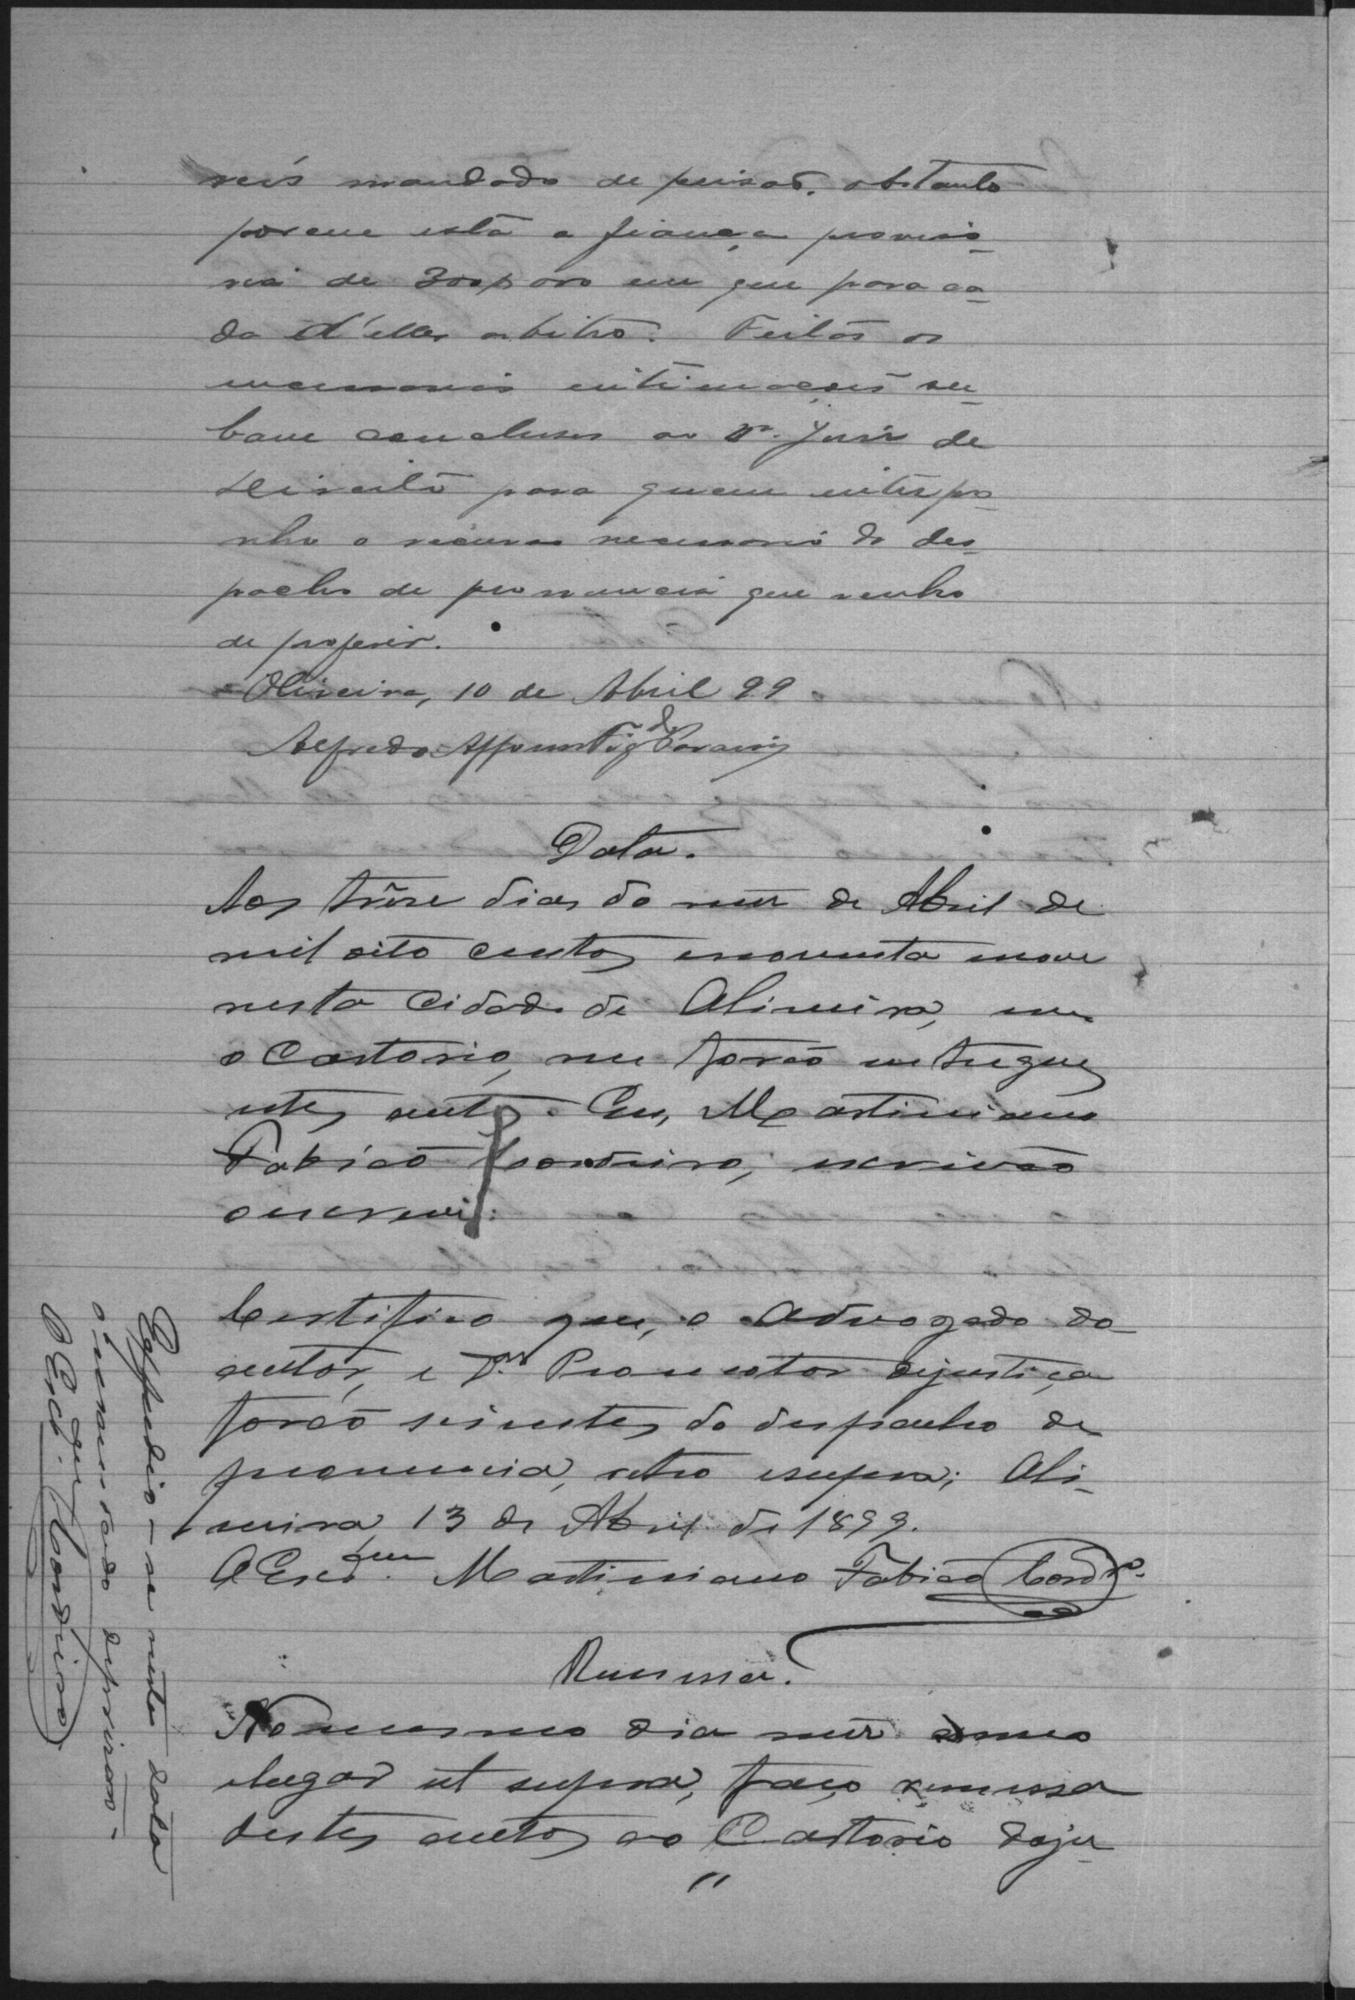 reis mandado de prisaõ. obstante
porem esta a fiança proviso-
ria de 300$000 em que para ca-
da d'elles arbitro. Feitas as
necessarias intimaçoes su-
bam conclusos ao Dr. Juiz de
Direito para quem interpo-
nho o recurso necessario do des-
pacho de pronuncia que venho
de proferir.
Oliveira, 10 de Abril 99
Alfredo Affonso
Data.
Aos treze dias do mez de Abril de
mil oito centos enoventa enove
nesta Cidade de Oliveira, em
o Cartorio, me foraõ entregues
estes autos. Eu, Martiniano
Fabiaõ Cordeiro, escrivaõ
oescrevi.
Certifico que, o Advogado do
autor, e Dr. Promotor dejustiça
foraõ scientes do despacho de
pronuncia, retro esupra; Oli-
veira 13 de Abril de 1899.
O Escam. Martiniano Fabiaõ Cordro.
Remessa.
Nomesmo dia mez anno
elugar ut supra, faço remessa
destes autos ao Cartorio doju-
"
Esppedio-se nesta data
o mandado deprisaõ.
O Escam. Cordeiro